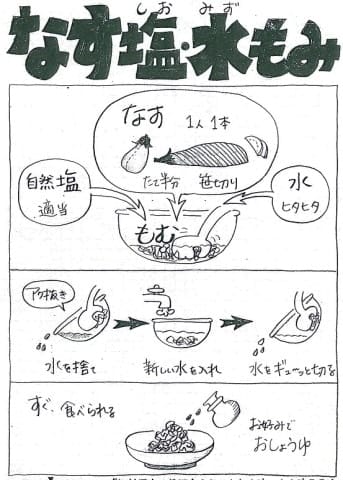 しお みず
なす塩・水もみ
なす 1人1本
たて半分 笹切り
自然塩
適当
水
ヒタヒタ
もむ
アク抜き
水を捨て
新しい水を入れ
水をギューッと切る
すぐ、食べられる
お好みで
おしょうゆ